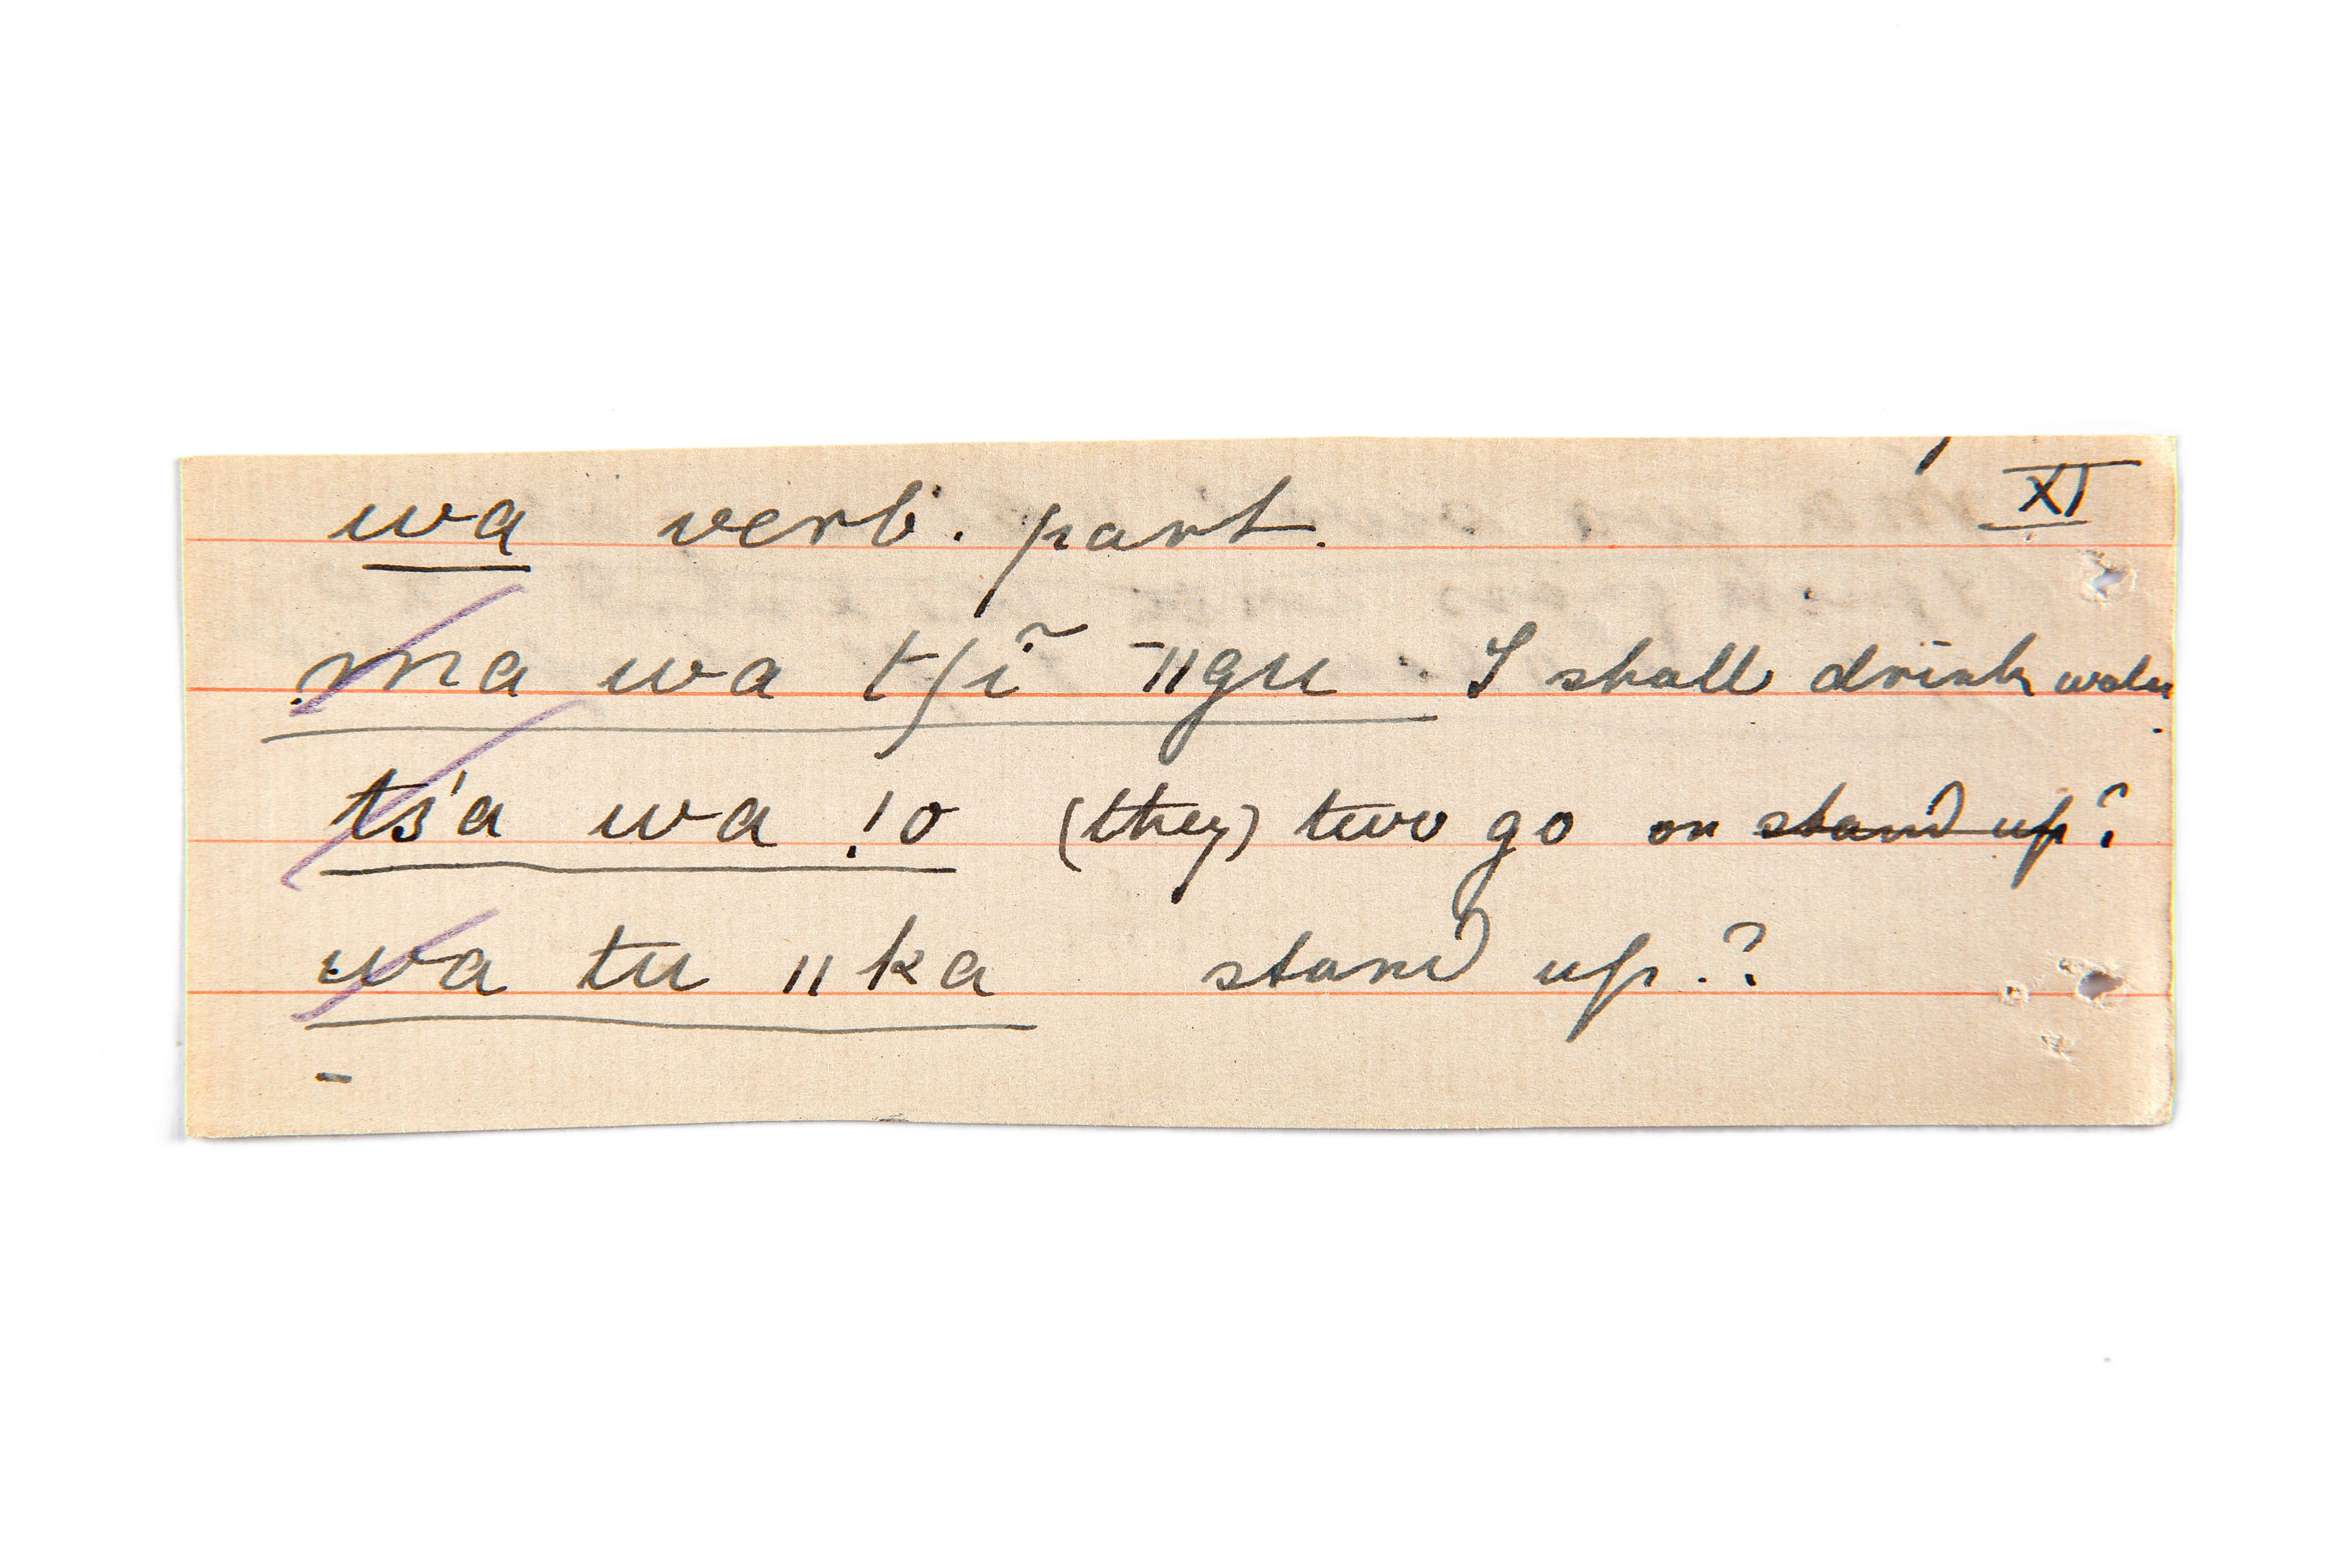 wa verb. part. XI
ma wa tʃĩ ‾ǁgu I shall drink water.
ts'a wa !o (they) two go on stand up?
wa tu ǁka stand up.?
-